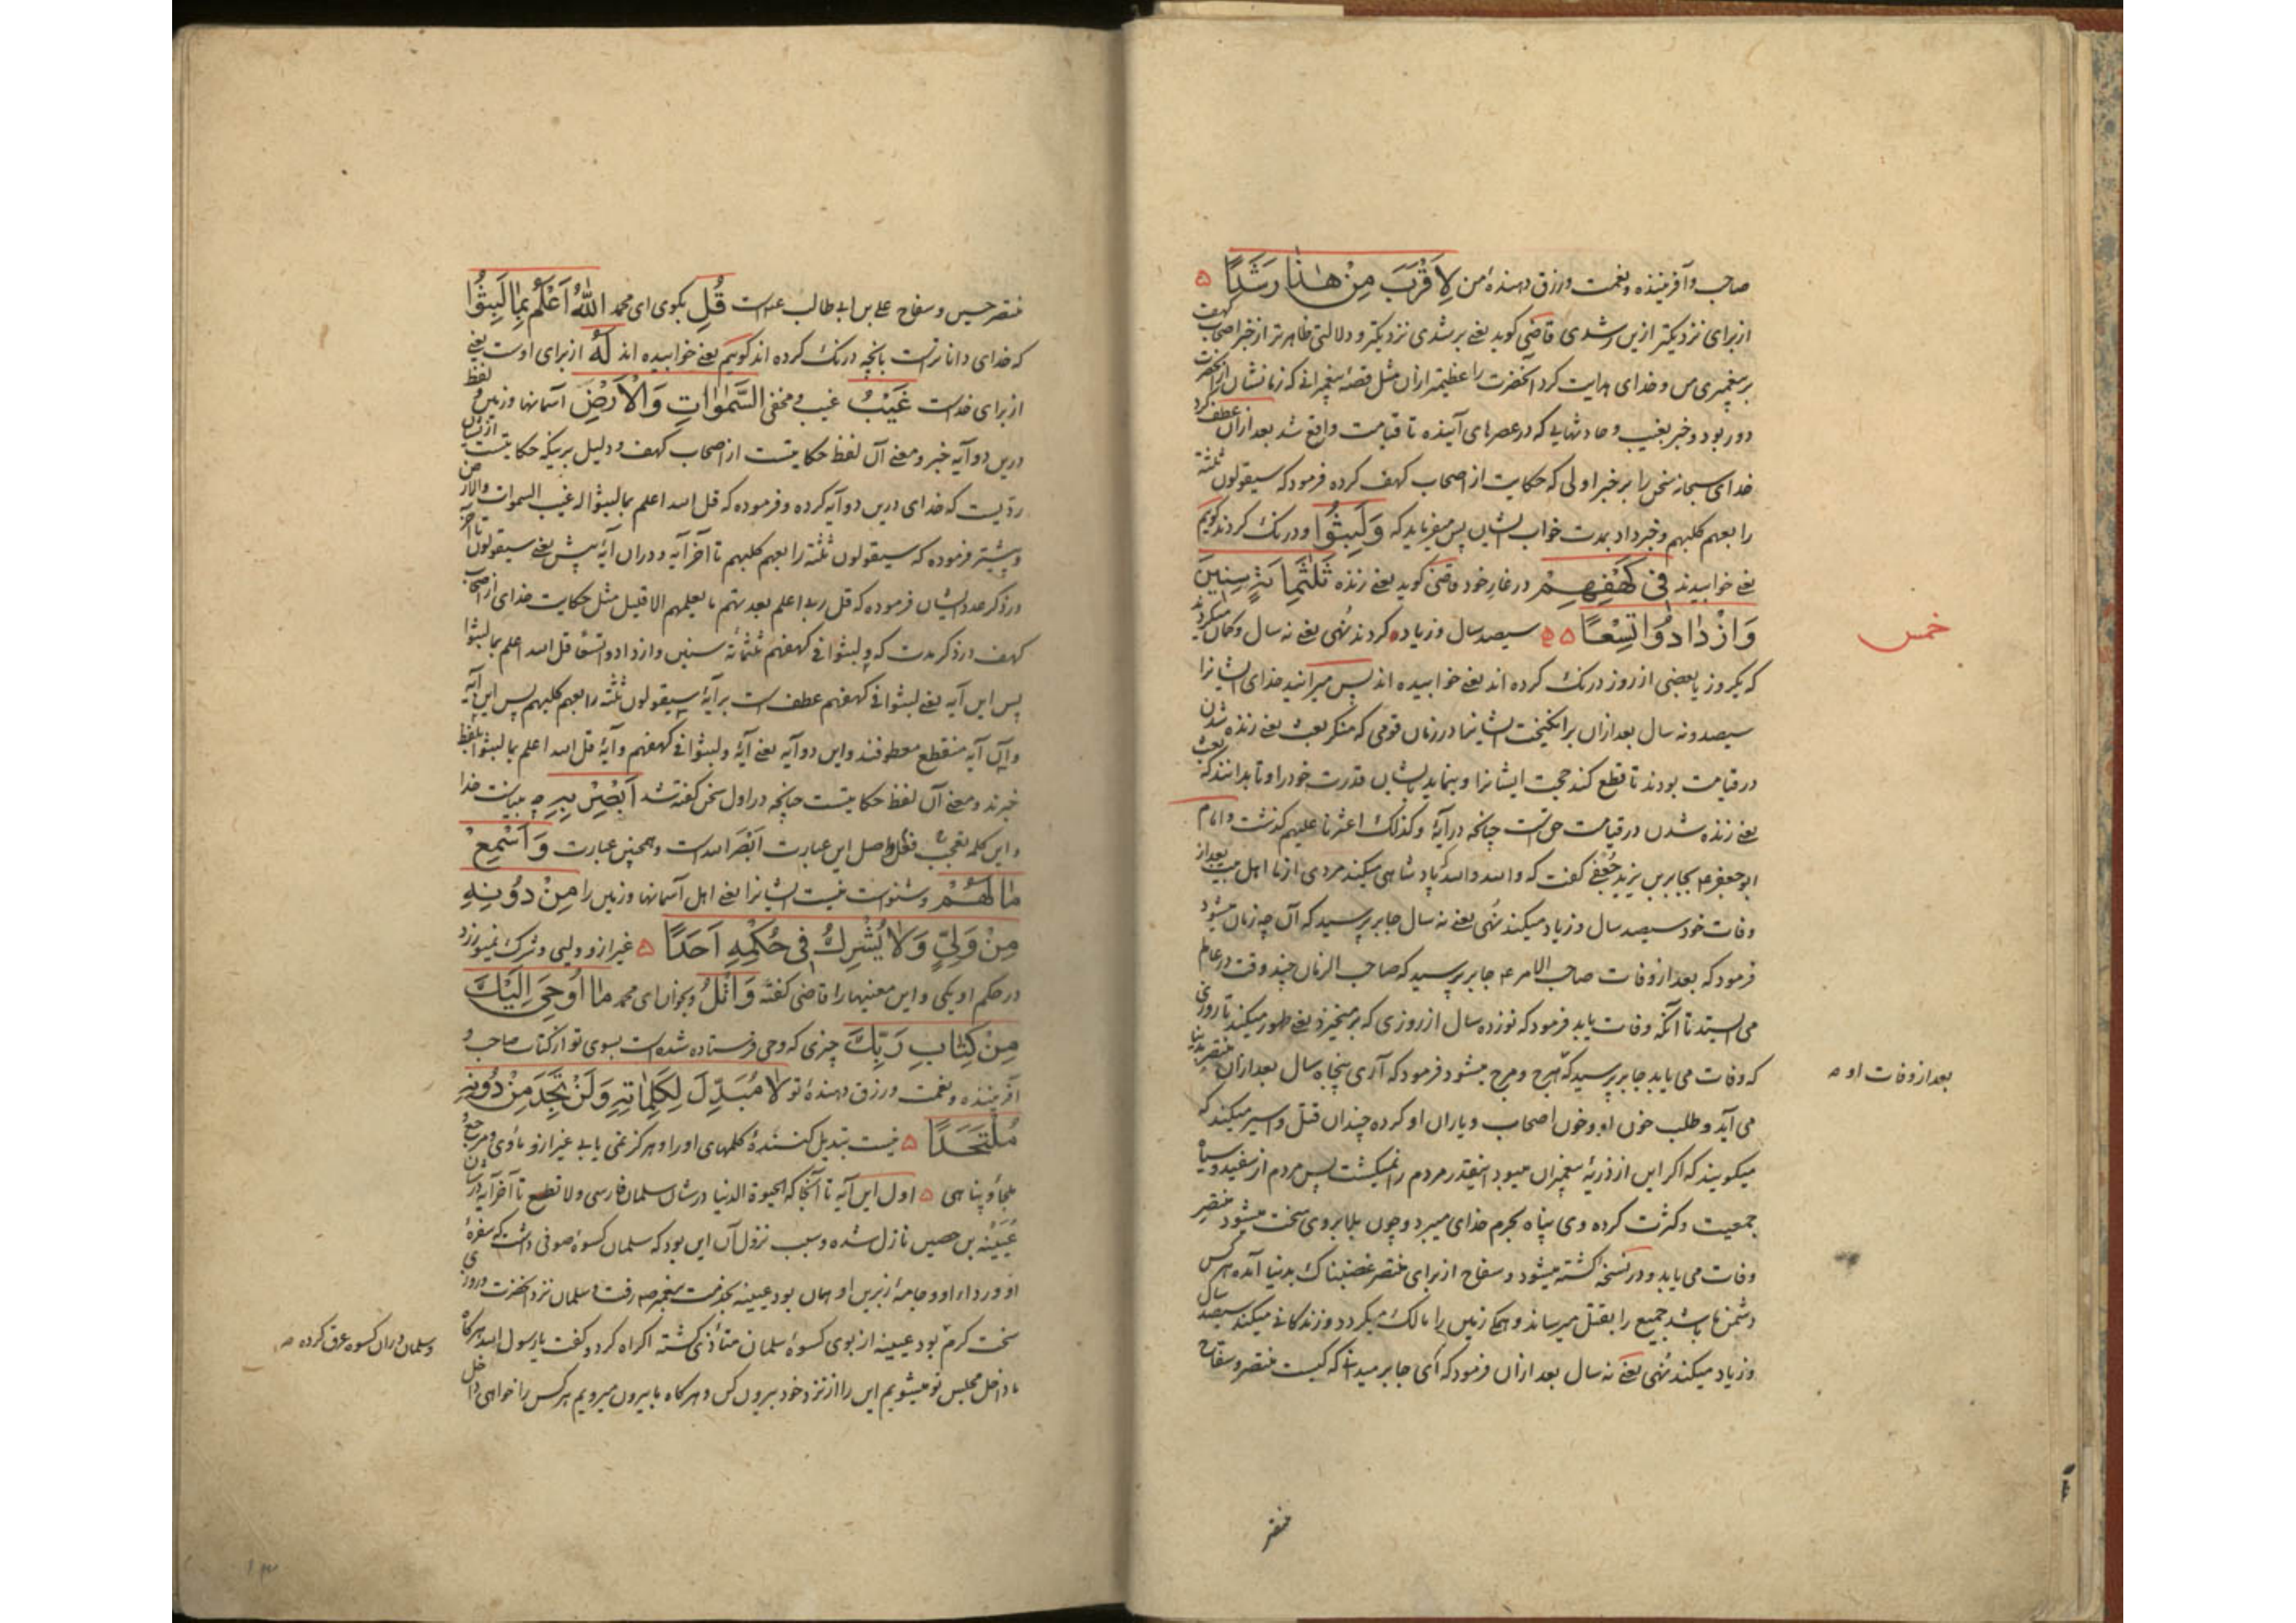 صاحب و آفریننده و نعمت و رزق دهندهٔ من لِاَقْرَبَ مِنْ هٰذٰا رَشَدًا ۵
از برای نزدیکتر ازین رشدی قاضی کوید یعنی برشدی نزدیکتر و دلالتی ظاهرتر از خبر اصحاب کهف
بر پیغمبری من و خدای هدایت کرد آنحضرت را عظیمتر ازان مثل قصهٔ پیغمبرانی که زمانشان از آنحضرت
دور بود و خبر بغیب و حادثهایی که در عصرهای آینده تا قیامت واقع شد بعد ازان عطف کرد
خدای سبحانه سخن را بر خبر اولی که حکایت از اصحاب کهف کرده فرمود که سیقولون ثلثة
رابعهم کلبهم و خبر داد بمدت خواب ایشان پس میفرماید که وَلَبِثُوا و درنک کردند کوئیم
یعنی خوابیدند فی کَهْفِهِمْ در غار خود قاضی کوید یعنی زنده ثَلٰثَمِائَةٍ سِنِینَ
وَازْدٰادُوا تِسْعًا ۵ ۵ سیصد سال و زیاده کردند نُهی یعنی نه سال و کمان میکردند
خمس
که یکروز یا بعضی از روز درنک کرده اند یعنی خوابیده اند پس میرانید خدای ایشانرا
سیصد و نه سال بعد ازان برانکیخت ایشانرا در زمان قومی که منکر بعث یعنی زنده شدن
در قیامت بودند تا قطع کند حجت ایشانرا و بنماید بایشان قدرت خود را و تا بدانند که بعث
یعنی زنده شدن در قیامت حق است چنانچه در آیهٔ و کذلک اعثرنا علیهم کذشت و امام
ابو جعفر ع بجابر بن یزید جُعْفی کفت که والله والله پادشاهی میکند مردی از ما اهل بیت بعد از
وفات خود سیصد سال و زیاد میکند نُهی یعنی نه سال جابر پرسید که آن چه زمان میشود
فرمود که بعد از وفات صاحب الامر ع جابر پرسید که صاحب الزمان چند وقت در عالم
می ایستد تا آنکه وفات یابد فرمود که نوزده سال از روزی که برمیخیزد یعنی ظهور میکند تا روزی
که وفات می یابد جابر پرسید که هرج و مرج میشود فرمود که آری پنجاه سال بعد ازان منتصر بدنیا
بعد از وفات او ص
می آید و طلب خون او و خون اصحاب و یاران او کرده چندان قتل و اسیر میکند که
میکویند که اکر این از ذریهٔ پیغمبران میبود اینقدر مردم را نمیکشت پس مردم از سفید و سیاه
جمعیت و کثرت کرده وی پناه بحرم خدای میبرد و چون بلا بر وی سخت میشود منتصر
وفات می یابد و در نسخه کشته میشود و سفاح از برای منتصر غضبناک بدنیا آمده هر کس
دشمن ما باشد جمیع را بقتل میرساند و همکی زمین را مالک میکردد و زندکانی میکند سیصد سال
و زیاد میکند نُهی یعنی نه سال بعد ازان فرمود که ای جابر میدانی که کیست منتصر و سفاح
منتصر
منتصر حسین و سفاح علی بن ابی طالب ع است قُلِ بکوی ای محمد اللّٰهُ اَعْلَمُ بِمٰا لَبِثُوا
که خدای داناتر است بانچه درنک کرده اند کوئیم یعنی خوابیده اند لَهُ از برای اوست یعنی
از برای خداست غَیْبُ غیب و مخفی السَّمٰوٰاتِ وَالْاَرْضِ آسمانها و زمین و لفظ
درین دو آیه خبر و معنی آن لفظ حکایتست از اصحاب کهف و دلیل بر اینکه حکایتست از ایشان
ردّیست که خدای درین دو آیه کرده و فرموده که قل الله اعلم بما لبثوا له غیب السموات والارض
و پیشتر فرموده که سیقولون ثلثة رابعهم کلبهم تا آخر آیه و دران آیهٔ پیش یعنی سیقولون تا آخر
در ذکر عدد ایشان فرموده که قل ربی اعلم بعدتهم ما یعلمهم الا قلیل مثل حکایت خدای از اصحاب
کهف در ذکر مدت که و لبثوا فی کهفهم ثلثمائة سنین وازدادوا تسعا قل الله اعلم بما لبثوا
پس این آیه یعنی لبثوا فی کهفهم عطف است بر آیهٔ سیقولون ثلثة رابعهم کلبهم پس این آیه
و آن آیه منقطع معطوفند و این دو آیه یعنی آیهٔ و لبثوا فی کهفهم و آیهٔ قل الله اعلم بما لبثوا بلفظ
خبرند و معنی آن لفظ حکایتست چنانچه در اول سخن کفته شد اَبْصِرْ بِهِ چه بیناست خدا
و این کلمه تعجب فعل و اصل این عبارت اَبْصَرَ الله است و همچنین عبارت وَاَسْمِعْ
مٰا لَهُمْ و شنواست نیست ایشانرا یعنی اهل آسمانها و زمین را مِنْ دُونِهِ
مِنْ وَلِیٍّ وَلٰا یُشْرِکُ فی حُکْمِهِ اَحَدًا ۵ غیر ازو ولیی و شرک نمیورزد
در حکم او یکی و این معنیها را قاضی کفته وَاتْلُ و بخوان ای محمد مٰا اُوحِیَ اِلَیْکَ
مِنْ کِتٰابِ رَبِّکَ چیزی که وحی فرستاده شده است بسوی تو از کتاب صاحب و
آفریننده و نعمت و رزق دهندهٔ تو لٰا مُبَدِّلَ لِکَلِمٰاتِهِ وَلَنْ تَجِدَ مِنْ دُونِهِ
مُلْتَحَدًا ۵ نیست تبدیل کنندهٔ کلمهای او را و هرکز نمی یابی غیر ازو مأوی و مرجع
ملجأ و پناهی ۵ اول این آیه تا آنجا که الحیوة الدنیا در شان سلمان فارسی و لا تطع تا آخر آیه در شان
عُیَیْنه بن حصین نازل شده و سبب نزول آن این بود که سلمان کسوهٔ صوفی داشت که سفرهٔ
او و رداء او و جامهٔ زیرین او همان بود عیینه بخدمت پیغمبر ص رفت و سلمان نزد آنحضرت و روزی
سخت کرم بود عیینه از بوی کسوهٔ سلمان متأذی کشته اکراه کرد و کفت یا رسول الله هر کاه
و سلمان دران کسوه عرق کرده ص
ما داخل مجلس تو میشویم این را از نزد خود بیرون کن و هر کاه ما بیرون میرویم هر کس را خواهی داخل